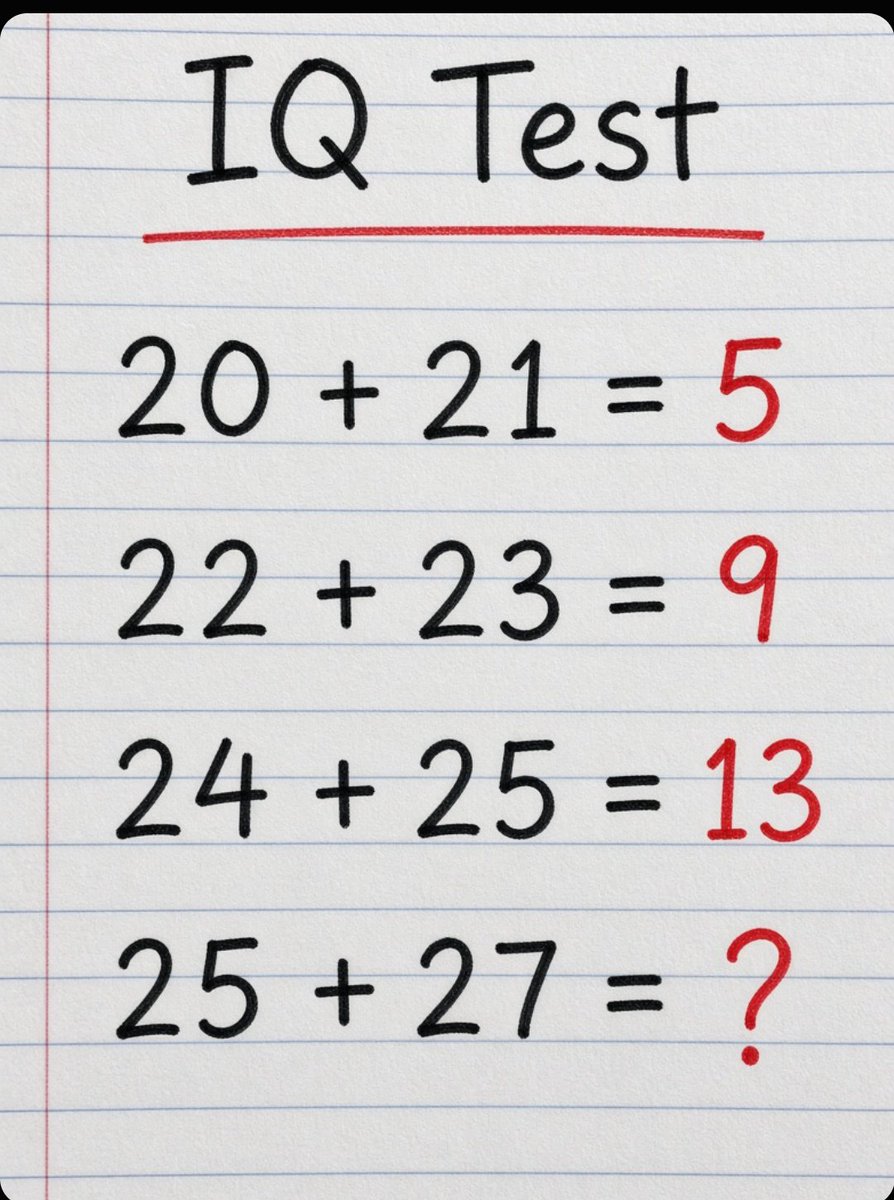 IQ Test
20 + 21 = 5
22 + 23 = 9
24 + 25 = 13
25 + 27 = ?